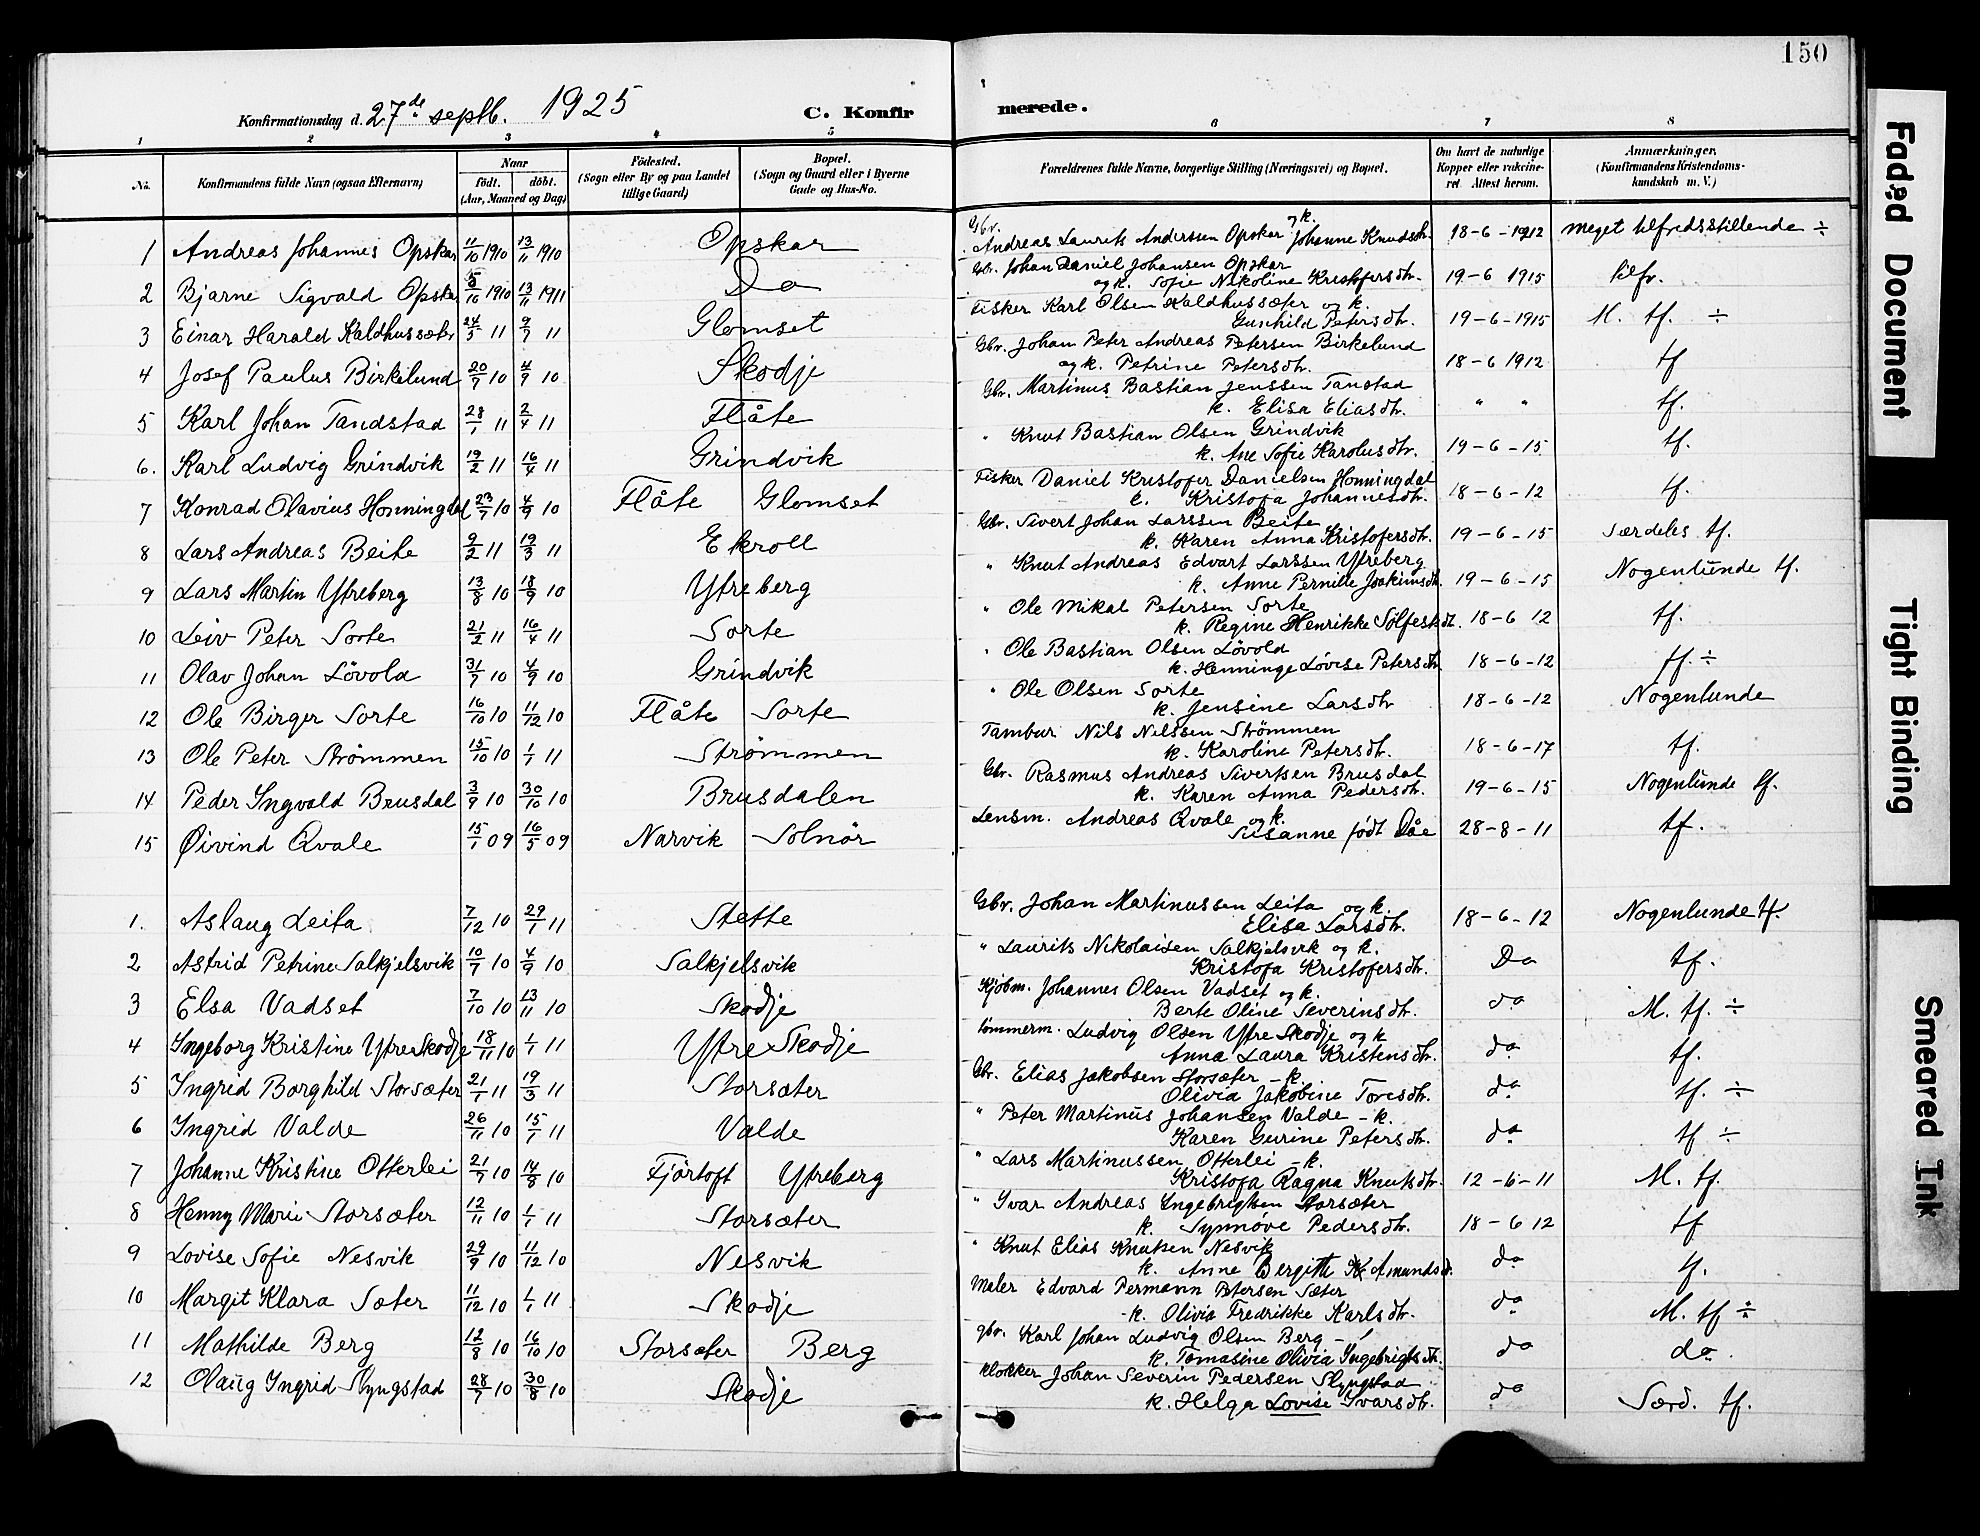 150
Konfirmationsdag d. 27de septb. 1925 C. Konfirmerede.
1 2 3 4 5 6 7 8
No. Konfirmandens fulde Navn (ogsaa Efternavn) Naar födt. döbt. (Aar, Maaned og Dag) Födested. (Sogn eller By og paa Landet tillige Gaard) Bopæl. (Sogn og Gaard eller i Byerne Gade og Hus-No. Forældrenes fulde Navne, borgerlige Stilling (Næringsvei) og Bopæl. Om havt de naturlige Kopper eller vakcineret. Attest herom. Anmærkninger. (Konfirmandens Kristendomskundskab m. V.)
1 Andreas Johannes Opskar 11/10 1910 13/11 1910 Opskar Gbr. Andreas Laurits Anderssen Opskar og k. Johanne Knudsdtr. 18-6-1912 meget tilfredsstillende ÷
2 Bjarne Sigvald Opskar 5/10 1910 13/11 1911 Do Gbr. Johan Daniel Johansen Opskar og k. Sofie Nikoline Kristofersdtr. 19-6 1915 tilfr.
3 Einar Harald Kaldhussæter 24/5 11 9/7 11 Glomset Fisker Karl Olsen Kaldhussæter og k. Gunhild Petersdtr. 19-6-1915 M. tf. ÷
4 Josef Paulus Birkelund 20/7 10 4/9 10 Skodje Gbr. Johan Peter Andreas Petersen Birkelund og k. Petrine Petersdtr. 18-6 1912 tf
5 Karl Johan Tandstad 28/1 11 2/4 11 Flåte Gbr. Martinus Bastian Jenssen Tanstad k. Elisa Eliasdtr. " " tf.
6. Karl Ludvig Grindvik 19/2 11 16/4 11 Grindvik " Knut Bastian Olsen Grindvik k. Ane Sofie Karolusdtr. 19-6-15. tf.
7 Konrad Olavius Honningdal 23/7 10 4/9 10 Flåte Glomset Fisker Daniel Kristofer Danielsen Honningdal k. Kristofa Johannesdtr. 18-6-12 tf.
8 Lars Andreas Beite 9/2 11 19/3 11 Ekroll Gbr. Sivert Johan Larssen Beite k. Karen Anna Kristofersdtr. 19-6-15 Særdeles tf.
9 Lars Martin Ytreberg 13/8 10 18/9 10 Ytreberg " Knut Andreas Edvart Larssen Ytreberg k. Anne Pernille Joakimsdtr. 19-6-15 Nogenlunde tf.
10 Leiv Peter Sorte 21/2 11 16/4 11 Sorte " Ole Mikal Petersen Sorte k. Regine Henrikke Sölfestdt. 18-6 12 tf.
11 Olav Johan Lövold 31/7 10 4/9 10 Grindvik " Ole Bastian Olsen Lövold k. Henninge Lovise Petersdtr. 18-6-12 tf. ÷
12 Ole Birger Sorte 16/10 10 11/12 10 Flåte Sorte " Ole Olsen Sorte k. Jensine Larsdtr 18-6-12 Nogenlunde
13 Ole Peter Strömmen 15/10 10 1/1 11 Strömmen Tambur Nils Nilssen Strömmen k. Karoline Petersdtr. 18-6-17 tf.
14 Peder Ingvald Brusdal 3/9 10 30/10 10 Brusdalen Gbr. Rasmus Andreas Sivertsen Brusdal k. Karen Anna Pedersdtr. 19-6-15 Nogenlunde tf.
15 Øivind Qvale 15/1 09 16/5 09 Narvik Solnör Lensm. Andreas Qvale og k. Susanne födt Dåe 28-8-11 tf.
1. Aslaug Leita 7/12 10 29/1 11 Stette Gbr. Johan Martinussen Leita og k. Elisa Larsdtr. 18-6-12 Nogenlunde tf.
2 Astrid Petrine Salkjelsvik 10/7 10 4/9 10 Salkjelsvik " Laurits Nikolaisen Salkjelsvik og k. Kristofa Kristofersdtr. Do tf.
3 Elsa Vadset 7/10 10 13/11 10 Skodje Kjöbm. Johannes Olsen Vadset og k. Berte Oline Severinsdtr. do M. tf. ÷
4 Ingeborg Kristine Ytre Skodje 18/11 10 1/1 11 Ytre Skodje Tömmerm. Ludvig Olsen Ytre Skodje og k Anna Laura Kristensdtr. do tf.
5 Ingrid Borghild Storsæter 21/1 11 19/3 11 Storsæter Gbr. Elias Jakobsen Storsæter - k. Olivia Jakobine Toresdtr. do tf. ÷
6 Ingrid Valde 26/11 10 15/1 11 Valde " Peter Martinus Johansen Valde - k. Karen Gurine Petersdtr. do tf ÷
7 Johanne Kristine Otterlei 21/7 10 14/8 10 Fjörtoft Ytreberg " Lars Martinussen Otterlei - k. Kristofa Ragna Knutsdtr. 12-6-11 M. tf.
8 Henny Marie Storsæter 12/11 10 1/1 11 Storsæter " Ivar Andreas Ingebrigtsen Storsæter k. Synnöve Pedersdtr. 18-6 12 tf
9 Lovise Sofie Nesvik 29/9 10 11/12 10 Nesvik " Knut Elias Knutsen Nesvik k. Anne Bergitte Amundsd. do tf.
10 Margit Klara Sæter 11/12 10 1/1 11 Skodje Maler Edvard Permann Petersen Sæter - k. Olivia Fredrikke Karlsdtr. do M. tf ÷
11 Mathilde Berg 12/8 10 16/10 10 Storsæter Berg gbr. Karl Johan Ludvig Olsen Berg - k. Tomasine Olivia Ingebrigtsdtr. do do.
12 Olaug Ingrid Slyngstad 28/7 10 30/8 10 Skodje Klokker Johan Severin Pedersen Slyngstad k. Helga Lovise Ivarsdtr. do Særd. tf.
Faded Document
Tight Binding
Smeared Ink